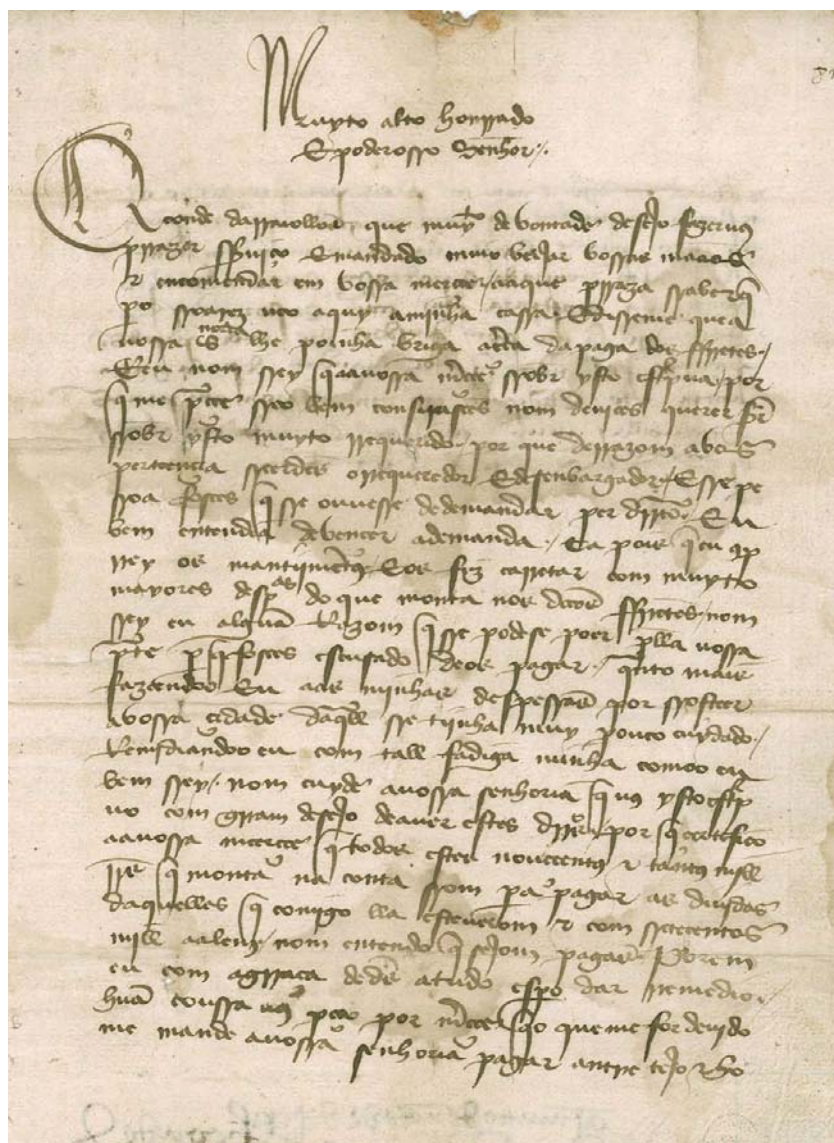 Muyto alto honrrado
E poderosso Senhor
O conde darrayollos que muyto de vontade desejo fazervos
prrazer sserviço E mandado envio beijar vossas maãos
E encomendar em vossa mercee aaque prraza ssaber q
po ssoarez veo aquy a minha cassa E disseme que a
vossa s lhe poinha briga açerca da paga dos ffretes
E eu nom ssey q a vossa mercee ssobre ysto por
q me pareçe sse o bem conssirasees nom deviees querer sser
ssobre ysto muyto rrequerido por que de rrazom a vos
perteencia sseerdes o rrequeredor E desenbargador E sse pe
ssoa fosees q sse ouvesse de demandar per dirto Eu
bem entendia de vencer a demanda Ca pois q eu
os mantiimentos E os fiz carretar com muyto
mayores despesas do que monta nos fretes nom
ssey eu alguã Razom q sse podese poer plla vossa
pte p q fosees escusado de os pagar qnto mais
fazeendoo Eu aas minhas despessas por ssosteer
a vossa cidade daqll sse tiinha muy pouco cuydado
Remediandoo eu com tall fadiga minha como eu
bem ssey nom cuyde a vossa senhoria q vos ysto
vo com gram desejo de aver estes dirros por q certefico
aa vossa mercee q todos estes novecentos E tantos mill
rrs q monta na conta ssom pa pagar as dividas
daquelles q comigo lla esteverom E com ssetecentos
mill aalem nom entendo q sejom pagas Porem
eu com a graça de ds a tudo espo dar rremedio
huã coussa vos peço por mercee q o que me for devido
me mande a vossa senhoria pagar antre tejo E